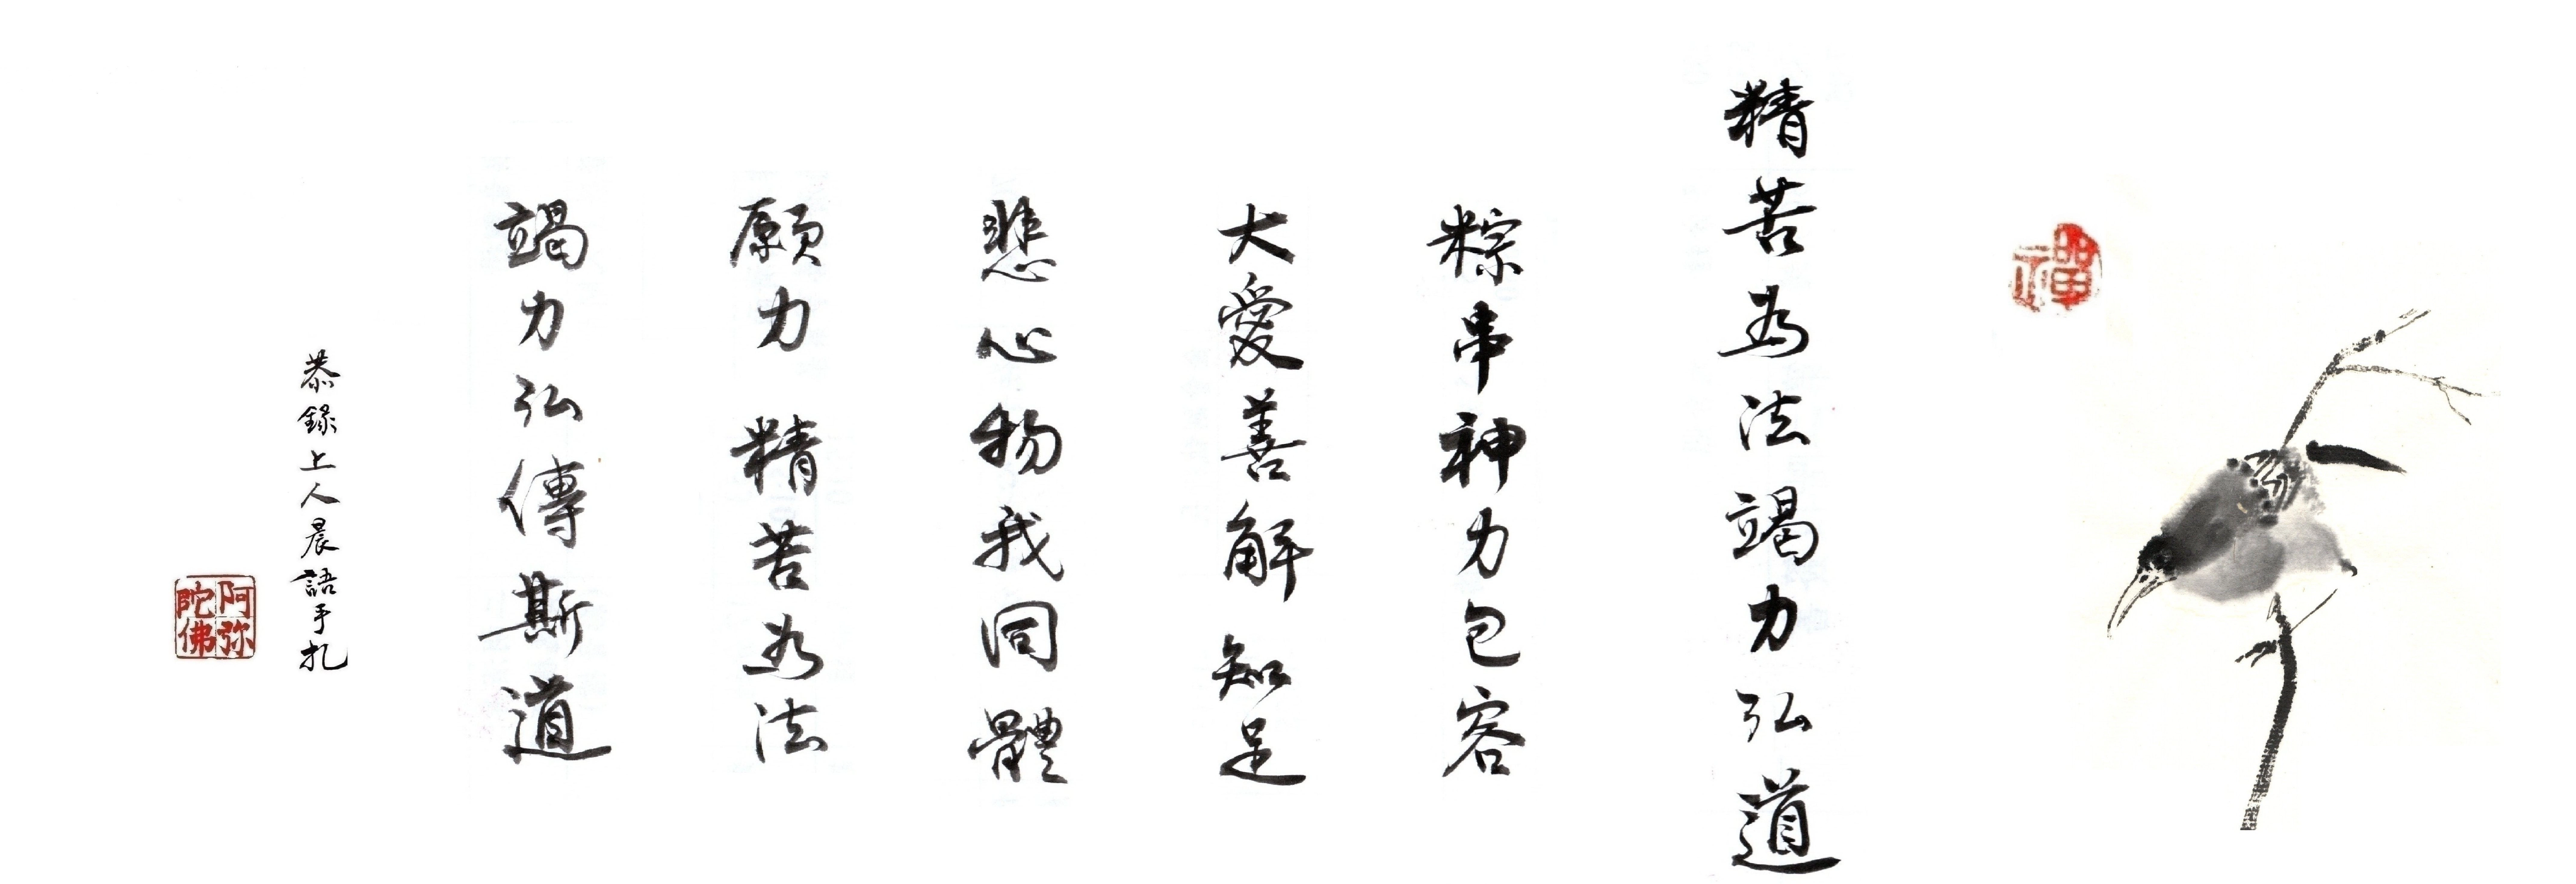 禪
精苦為法竭力弘道
粽串神力包容
大愛善解知足
悲心物我同體
願力精苦為法
竭力弘傳斯道
恭錄上人晨語手扎
阿弥陀佛